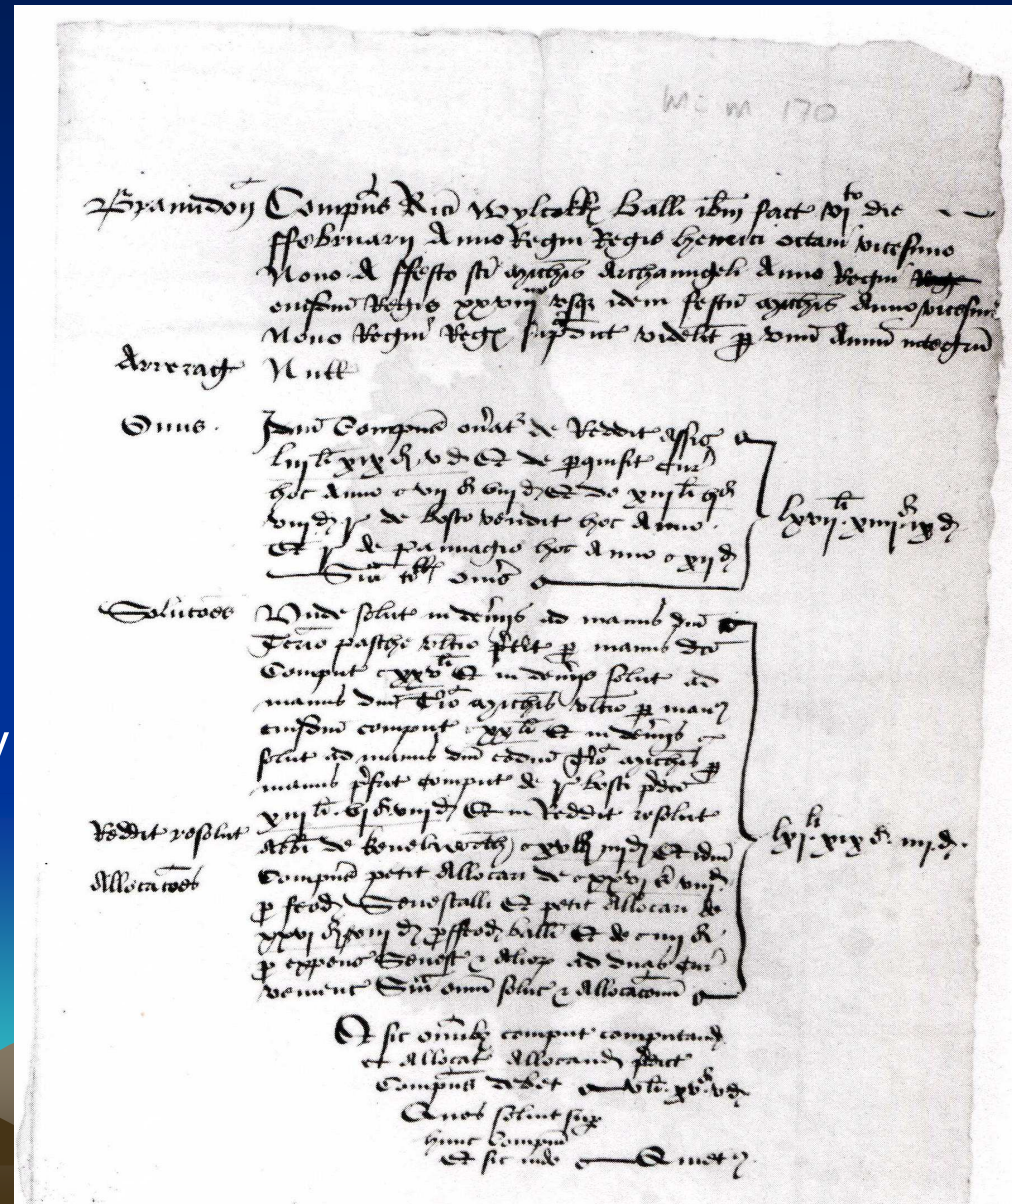 M: m 170
Bramdon Compus Rici Wylcokk Balli ibm fact vi to die
ffebruarii Anno Regni Regis henrici octavi vicesimo
Nono A ffesto sci Michis Archangeli Anno Regni Regis
eiusdem Regis xxviii usq idem festu Michis Anno vicesimo
Nono Regni Reg videlit p unu Annu integru
Arrerag Null
Onus Idm Comput on'at de Reddit Assis
liii li xix s v d Et de pquisit Cur
hoc Anno vii s viii d Et de xiii li
viii d de bosco vendit hoc Anno
Et de pannagio hoc Anno xii d
Sma on'is
lxvii li xiiii s ix d
Soluciones Unde solut in den'iis ad manus dni
T'mio pasche ultio p manus dci
Comput xxv li Et in den'iis solut ad
manus dni T'io Michis ultio p man
eiusdm comput xx li Et in den'iis
solut ad manus dni eodm T'io Michis p
manus p'fat comput de bosci pdci
xiii li vi s viii d Et in Reddit resolut
Reddit resolut
Abbi de kenelworth Et idm
Allocacoes
Comput petit Allocari de xxvi s viii d
p feod Senescalli Et petit Allocari de
xxvi s viii d p ffeod balli Et de iiii s
p expens Senest & alior ad duas Cur
venient Sma omn solut & Allocacionu
lxi li xix s iiii d
Et sic om'ibz comput computand
et allocat Allocand pdict
Compus debet v li xv s v d
Quos solvit sup
hunc Compm
Et sic inde Quiet
y